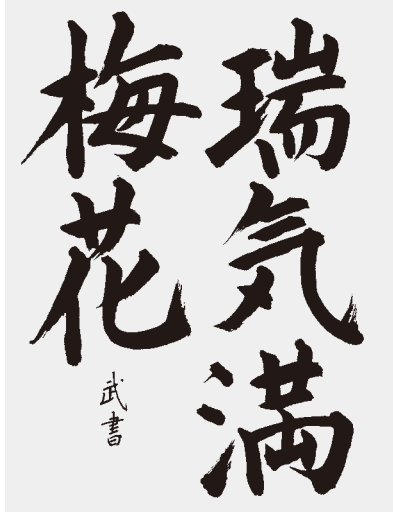 瑞気満
梅花
武書